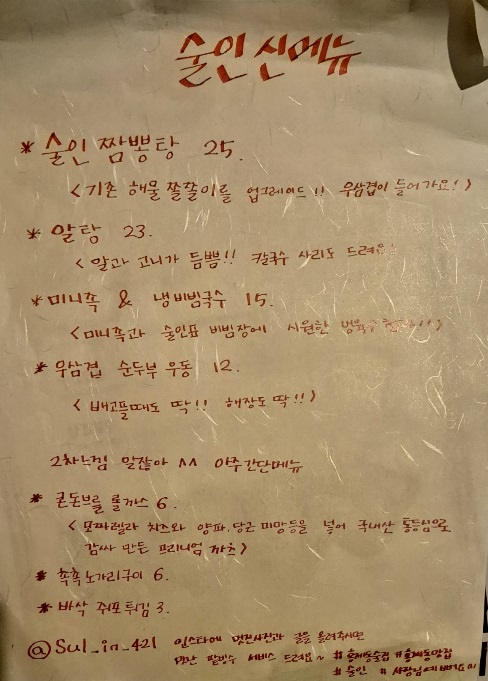 술인 신메뉴
* 술인 짬뽕탕 25.
<기존 해물 쫄쫄이를 업그레이드!! 우삼겹이 들어가요!>
* 알탕 23.
<알과 고니가 듬뿍!! 칼국수 사리도 드려요!
* 미니족 & 냉비빔국수 15.
<미니족과 술인표 비빔장에 시원한
* 우삼겹 순두부 우동 12.
<배고플때도 딱!! 해장도 딱!!>
2차느낌 알잖아 ^^ 아주간단메뉴
* 콘돈브루 롤까스 6.
<모짜렐라 치즈와 양파, 당근 피망등을 넣어 국내산 통등심으로
감싸 만든 프리미엄 까츠>
* 촉촉노가리구이 6.
* 바삭 쥐포튀김 3.
@Sul_in_421 인스타에 멋진사진과 글을 올려주시면
팥빙수 서비스 드려요~ #홍제동술집 #홍제동맛집
#술인 #사장님예뻐요